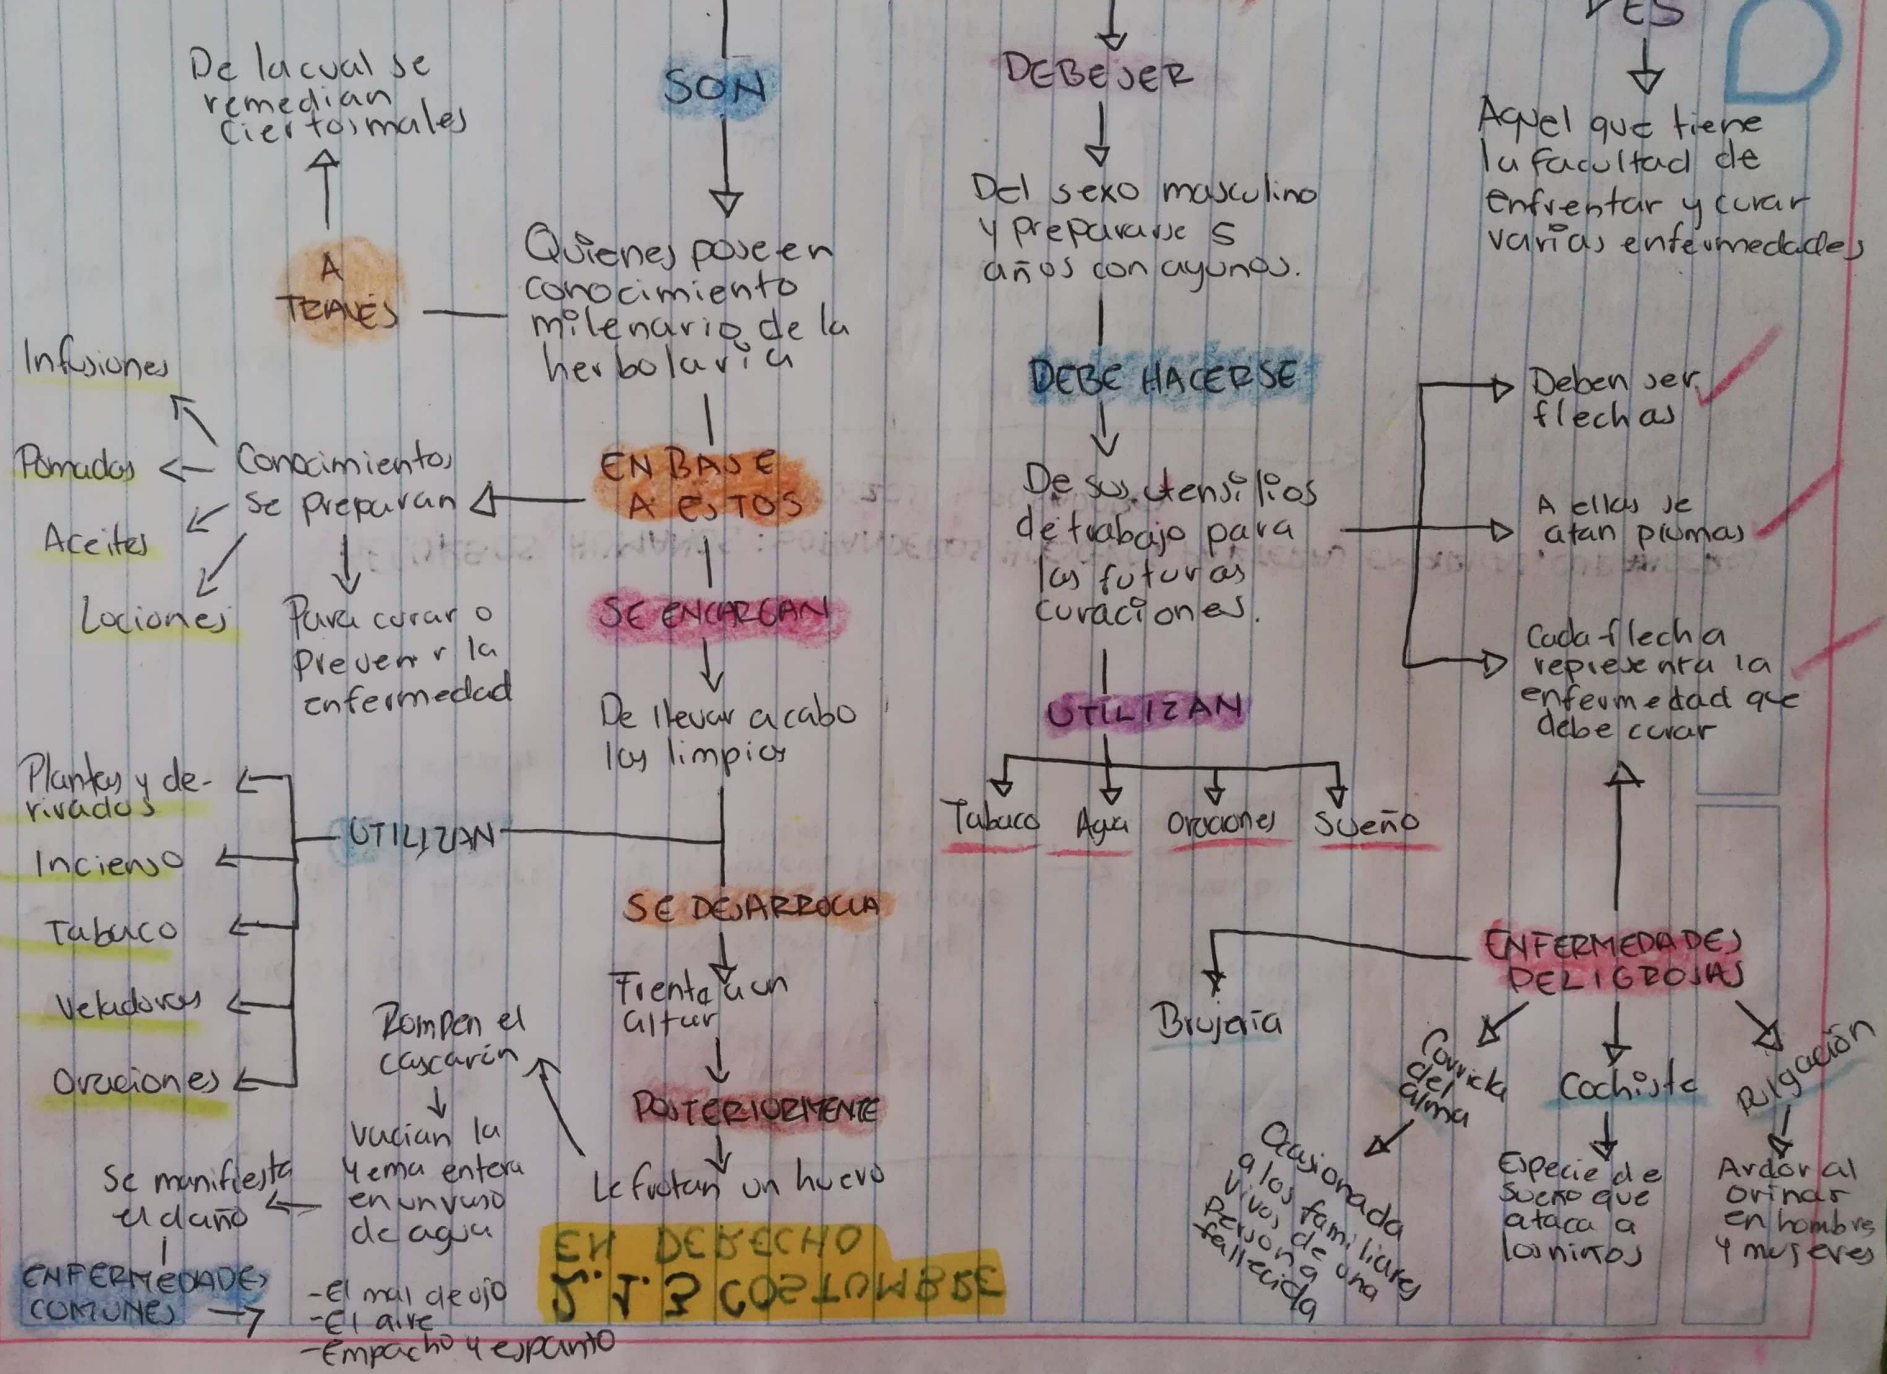 De la cual se
remedian
ciertos males
A
TRAVÉS
SON
Quienes poseen
conocimiento
milenario de la
herbolaria
Infusiones
Pomadas
Aceites
Lociones
Conocimientos
se preparan
Para curar o
prevenir la
enfermedad
EN BASE
A ESTOS
SE ENCARGAN
De llevar a cabo
las limpias
UTILIZAN
Plantas y de-
rivados
Incienso
Tabaco
Veladoras
Oraciones
SE DESARROLLA
Frente a un
altar
POSTERIORMENTE
Le frotan un huevo
Rompen el
cascarón
vacian la
yema entera
en un vaso
de agua
Se manifiesta
el daño
ENFERMEDADES
COMUNES
-El mal de ojo
-El aire
-Empacho y espanto
2.1.3 COSTUMBRE
EN DERECHO
DEBE SER
Del sexo masculino
y prepararse 5
años con ayunos.
DEBE HACERSE
De sus utensilios
de trabajo para
las futuras
curaciones.
UTILIZAN
Tabaco
Agua
Oraciones
Sueño
ES
Aquel que tiene
la facultad de
enfrentar y curar
varias enfermedades
Deben ser
flechas
A ellas se
atan plumas
Cada flecha
representa la
enfermedad que
debe curar
ENFERMEDADES
PELIGROSAS
Brujería
Corrida
del
alma
Ocasionada
a los familiares
vivos de una
persona
fallecida
Cochiste
Especie de
sueño que
ataca a
los niños
Pulgación
Ardor al
orinar
en hombres
y mujeres